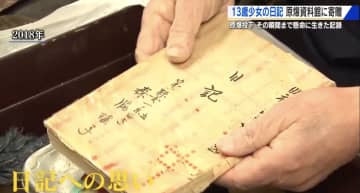 2018年
13歳少女の日記 原爆資料館に寄贈
原爆投下 その瞬間まで懸命に生きた記録
日記
森脇瑤子
日記への思い